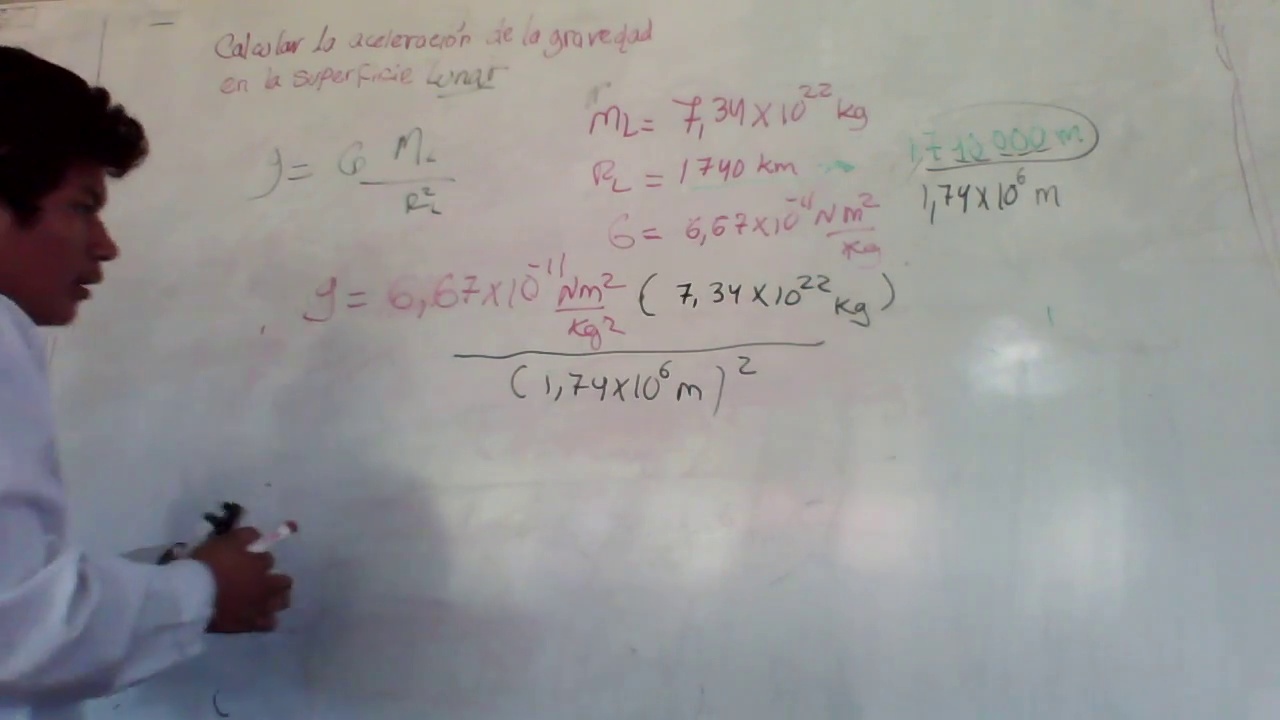 Calcular la aceleración de la gravedad
en la superficie Lunar
g = G M_L / R_L^2
M_L = 7,34 x 10^22 kg
R_L = 1740 km
1,740 000 m
1,74 x 10^6 m
G = 6,67 x 10^-11 Nm^2 / kg
g = 6,67 x 10^-11 Nm^2 / kg^2 ( 7,34 x 10^22 kg )
(1,74 x 10^6 m)^2